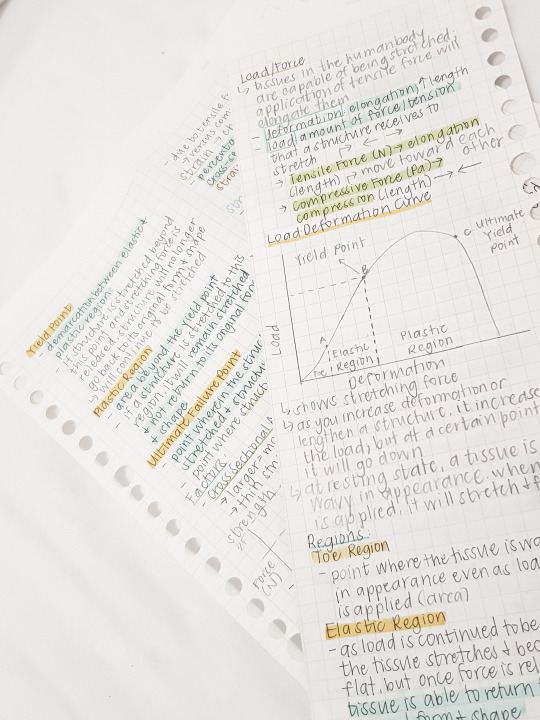 Load/Force
↳ tissues in the human body
are capable of being stretched;
application of tensile force will
elongate them
- deformation: elongation, ↑ length
- load: amount of force/tension
that a structure receives to
stretch
→ Tensile Force (N) → elongation
(length) → move toward each
other
→ compressive Force (Pa) →
compression (length)
Load Deformation Curve
Yield Point
C Ultimate
Yield
Point
B
A
Load
Toe
Elastic
Region
Plastic
Region
Deformation
↳ shows stretching force
↳ as you increase deformation or
lengthen a structure, it increase
the load, but at a certain point
it will go down
↳ at resting state, a tissue is
wavy in appearance. when
is applied, it will stretch +
Regions:
Toe Region
- point where the tissue is
in appearance even as loa
is applied (area)
Elastic Region
- as load is continued to be
the tissue stretches + bec
flat, but once force is rel
tissue is able to return
form + shape
- due to tensile f
Yield Point
- demarcation between elastic +
plastic region
- if structure is stretched beyond
this point + stretching force is
released, structure will no longer
go back to its original form + shape
↳ will continue to be stretched
Plastic Region
- area beyond the yield point
- if a structure is stretched to this
region, it will remain stretched
+ not return to its original for
+ shape
Ultimate Failure Point
- point wherein the struc
stretched + structu
- point where struc
Factors:
- Cross Sectional
→ larger
→ thick
strength
Force
(N)